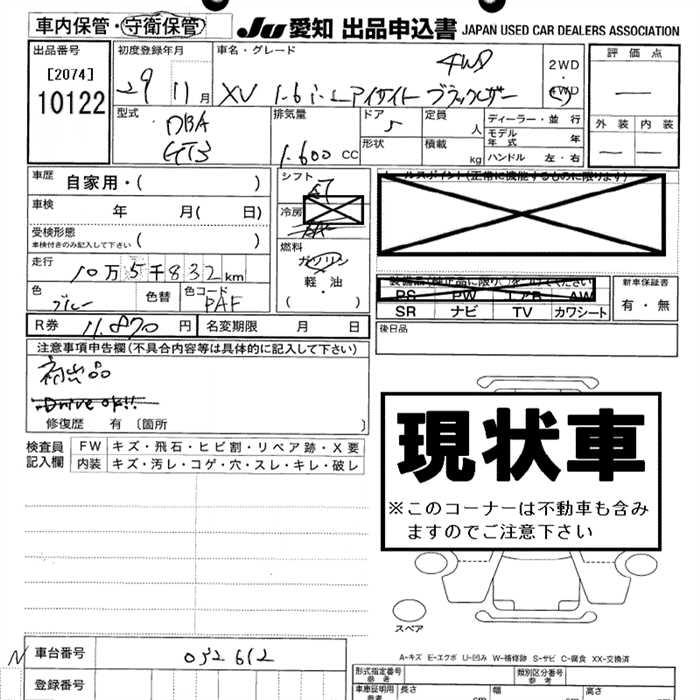 車内保管・守衛保管 JU 愛知 出品申込書 JAPAN USED CAR DEALERS ASSOCIATION
出品番号 [2074] 10122
初度登録年月 29 11月
車名・グレード XV 1.6i-L アイサイト 4WD ブラックレザー
2WD・4WD
評価点 —
外装 内装
— —
型式 DBA GT3
排気量 1.600 cc
ドア 5
形状
定員 人
積載 kg
ディーラー・並行
モデル年式 年
ハンドル 左・右
車歴 自家用・( )
車検 年 月( 日)
受検形態 ( )
車検付きのみ記入して下さい
走行 10万5千832km
色 ブルー 色替 色コード PAF
シフト AT
冷房
燃料 ガソリン
軽・油
・( )
セールスポイント(正常に機能するものに限ります)
PS PW エアB AW
SR ナビ TV カワシート
新車保証書 有・無
R券 11.870 円 名変期限 月 日
後日品
注意事項申告欄(不具合内容等は具体的に記入して下さい)
初出品
Drive ok!!
修復歴 有 〔箇所 〕
検査員記入欄
FW キズ・飛石・ヒビ割・リペア跡・X要
内装 キズ・汚レ・コゲ・穴・スレ・キレ・破レ
現状車
※このコーナーは不動車も含みますのでご注意下さい
スペア
A-キズ E-エクボ U-凹み W-補修跡 S-サビ C-腐食 XX-交換済
N 車台番号 032612
登録番号
形式指定番号 参考
類別区分番号 参考
車庫証明用 参考 長さ cm 幅 cm 高さ cm